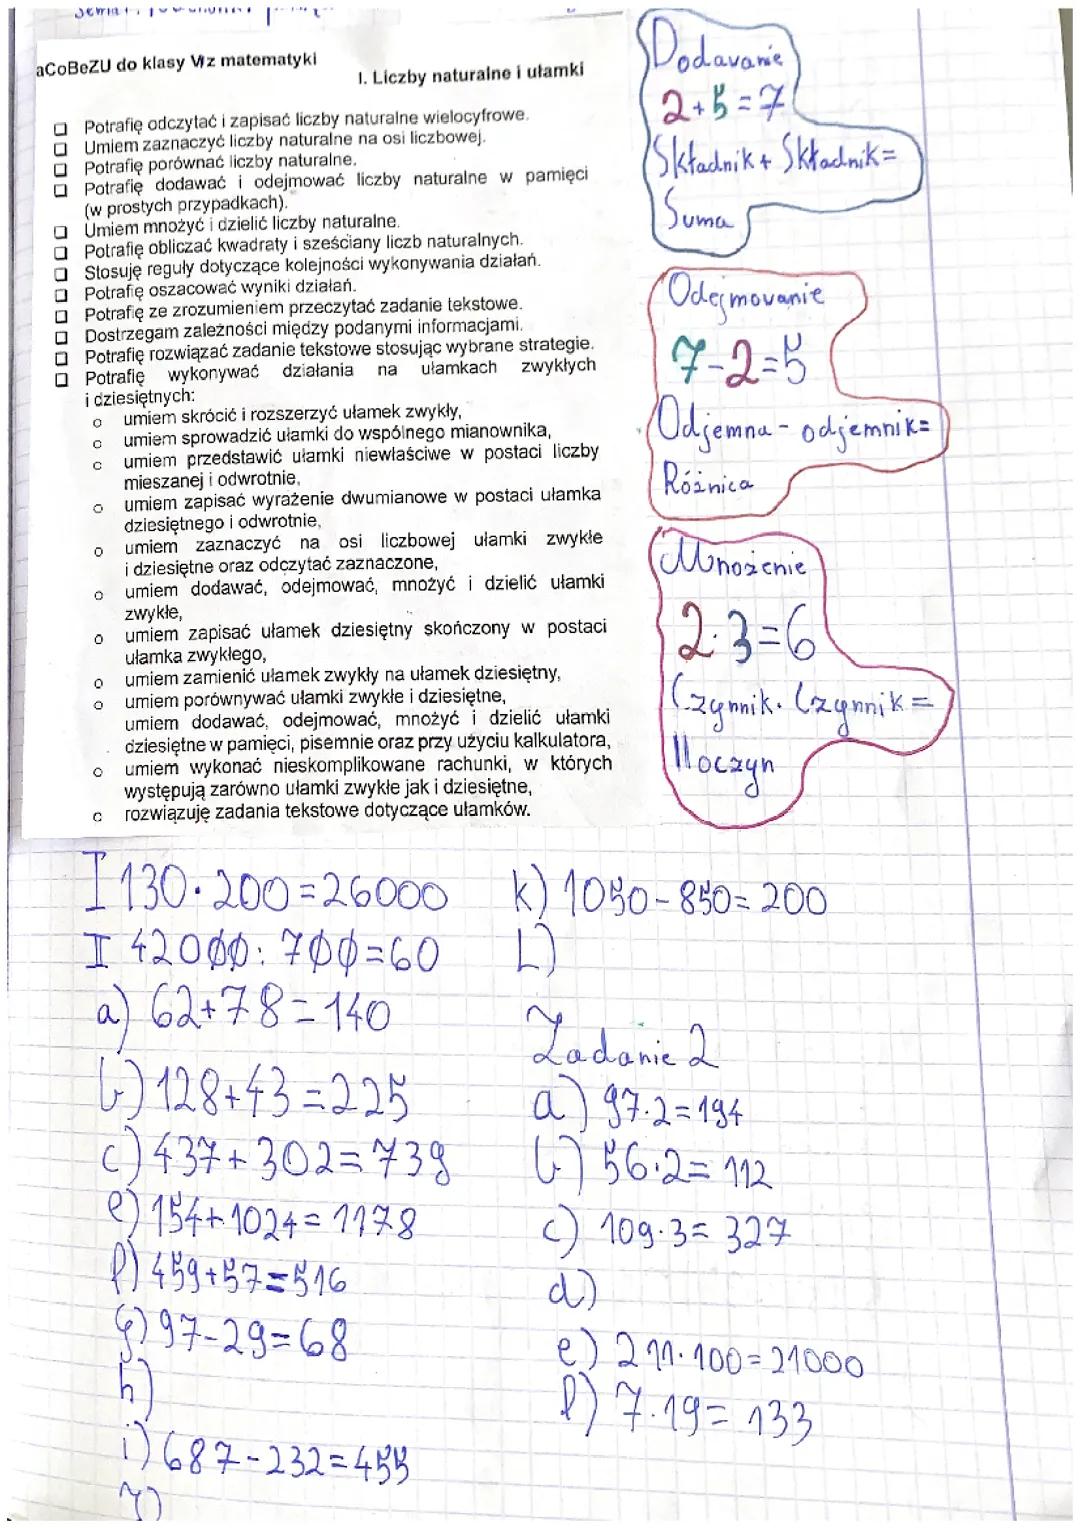 aCoBeZU do klasy VI z matematyki
I. Liczby naturalne i ułamki
Potrafię odczytać i zapisać liczby naturalne wielocyfrowe.
Umiem zaznaczyć liczby naturalne na osi liczbowej.
Potrafię porównać liczby naturalne.
Potrafię dodawać i odejmować liczby naturalne w pamięci
(w prostych przypadkach).
Umiem mnożyć i dzielić liczby naturalne.
Potrafię obliczać kwadraty i sześciany liczb naturalnych.
Stosuję reguły dotyczące kolejności wykonywania działań.
Potrafię oszacować wyniki działań.
Potrafię ze zrozumieniem przeczytać zadanie tekstowe.
Dostrzegam zależności między podanymi informacjami.
Potrafię rozwiązać zadanie tekstowe stosując wybrane strategie.
Potrafię wykonywać działania na ułamkach zwykłych
i dziesiętnych:
umiem skrócić i rozszerzyć ułamek zwykły,
umiem sprowadzić ułamki do wspólnego mianownika,
umiem przedstawić ułamki niewłaściwe w postaci liczby
mieszanej i odwrotnie,
umiem zapisać wyrażenie dwumianowe w postaci ułamka
dziesiętnego i odwrotnie,
umiem zaznaczyć na osi liczbowej ułamki zwykłe
i dziesiętne oraz odczytać zaznaczone,
umiem dodawać, odejmować, mnożyć i dzielić ułamki
zwykłe,
umiem zapisać ułamek dziesiętny skończony w postaci
ułamka zwykłego,
umiem zamienić ułamek zwykły na ułamek dziesiętny,
umiem porównywać ułamki zwykłe i dziesiętne,
umiem dodawać, odejmować, mnożyć i dzielić ułamki
dziesiętne w pamięci, pisemnie oraz przy użyciu kalkulatora,
umiem wykonać nieskomplikowane rachunki, w których
występują zarówno ułamki zwykłe jak i dziesiętne,
rozwiązuję zadania tekstowe dotyczące ułamków.
Dodawanie
2+5=7
Składnik + Składnik=
Suma
Odejmowanie
7-2=5
Odjemna - odjemnik=
Różnica
Mnożenie
2·3=6
Czynnik · Czynnik =
Iloczyn
I 130·200=26000
II 42000:700=60
a) 62+78=140
b) 128+43=225
c) 437+302=739
e) 154+1024=1178
f) 459+57=516
g) 97-29=68
h)
i) 687-232=455
j)
k) 1050-850=200
L)
Zadanie 2
a) 97·2=194
b) 56·2=112
c) 109·3=327
d)
e) 211·100=21000
f) 7·19=133